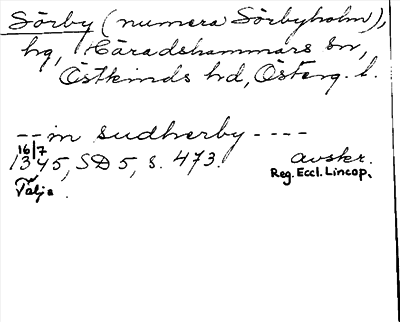 Sörby (numera Sörbyholm),
hg, Häradshammars sn,
Östkinds hd, Österg. l.
-- in sudherby ----
16/7
1345, SD 5, s. 473. avskr.
Tälje. Reg. Eccl. Lincop.